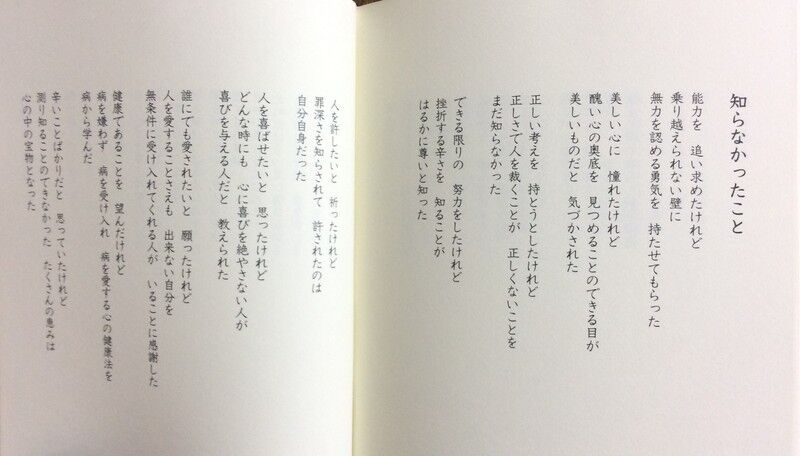 知らなかったこと
能力を　追い求めたけれど
乗り越えられない壁に
無力を認める勇気を　持たせてもらった
美しい心に　憧れたけれど
醜い心の奥底を　見つめることのできる目が
美しいものだと　気づかされた
正しい考えを　持とうとしたけれど
正しさで人を裁くことが　正しくないことを
まだ知らなかった
できる限りの　努力をしたけれど
挫折する辛さを　知ることが
はるかに尊いと知った
人を許したいと　祈ったけれど
罪深さを知らされて　許されたのは
自分自身だった
人を喜ばせたいと　思ったけれど
どんな時にも　心に喜びを絶やさない人が
喜びを与える人だと　教えられた
誰にでも愛されたいと　願ったけれど
人を愛することさえも　出来ない自分を
無条件に受け入れてくれる人が　いることに感謝した
健康であることを　望んだけれど
病を嫌わず　病を受け入れ　病を愛する心の健康法を
病から学んだ
辛いことばかりだと　思っていたけれど
測り知ることのできなかった　たくさんの恵みは
心の中の宝物となった